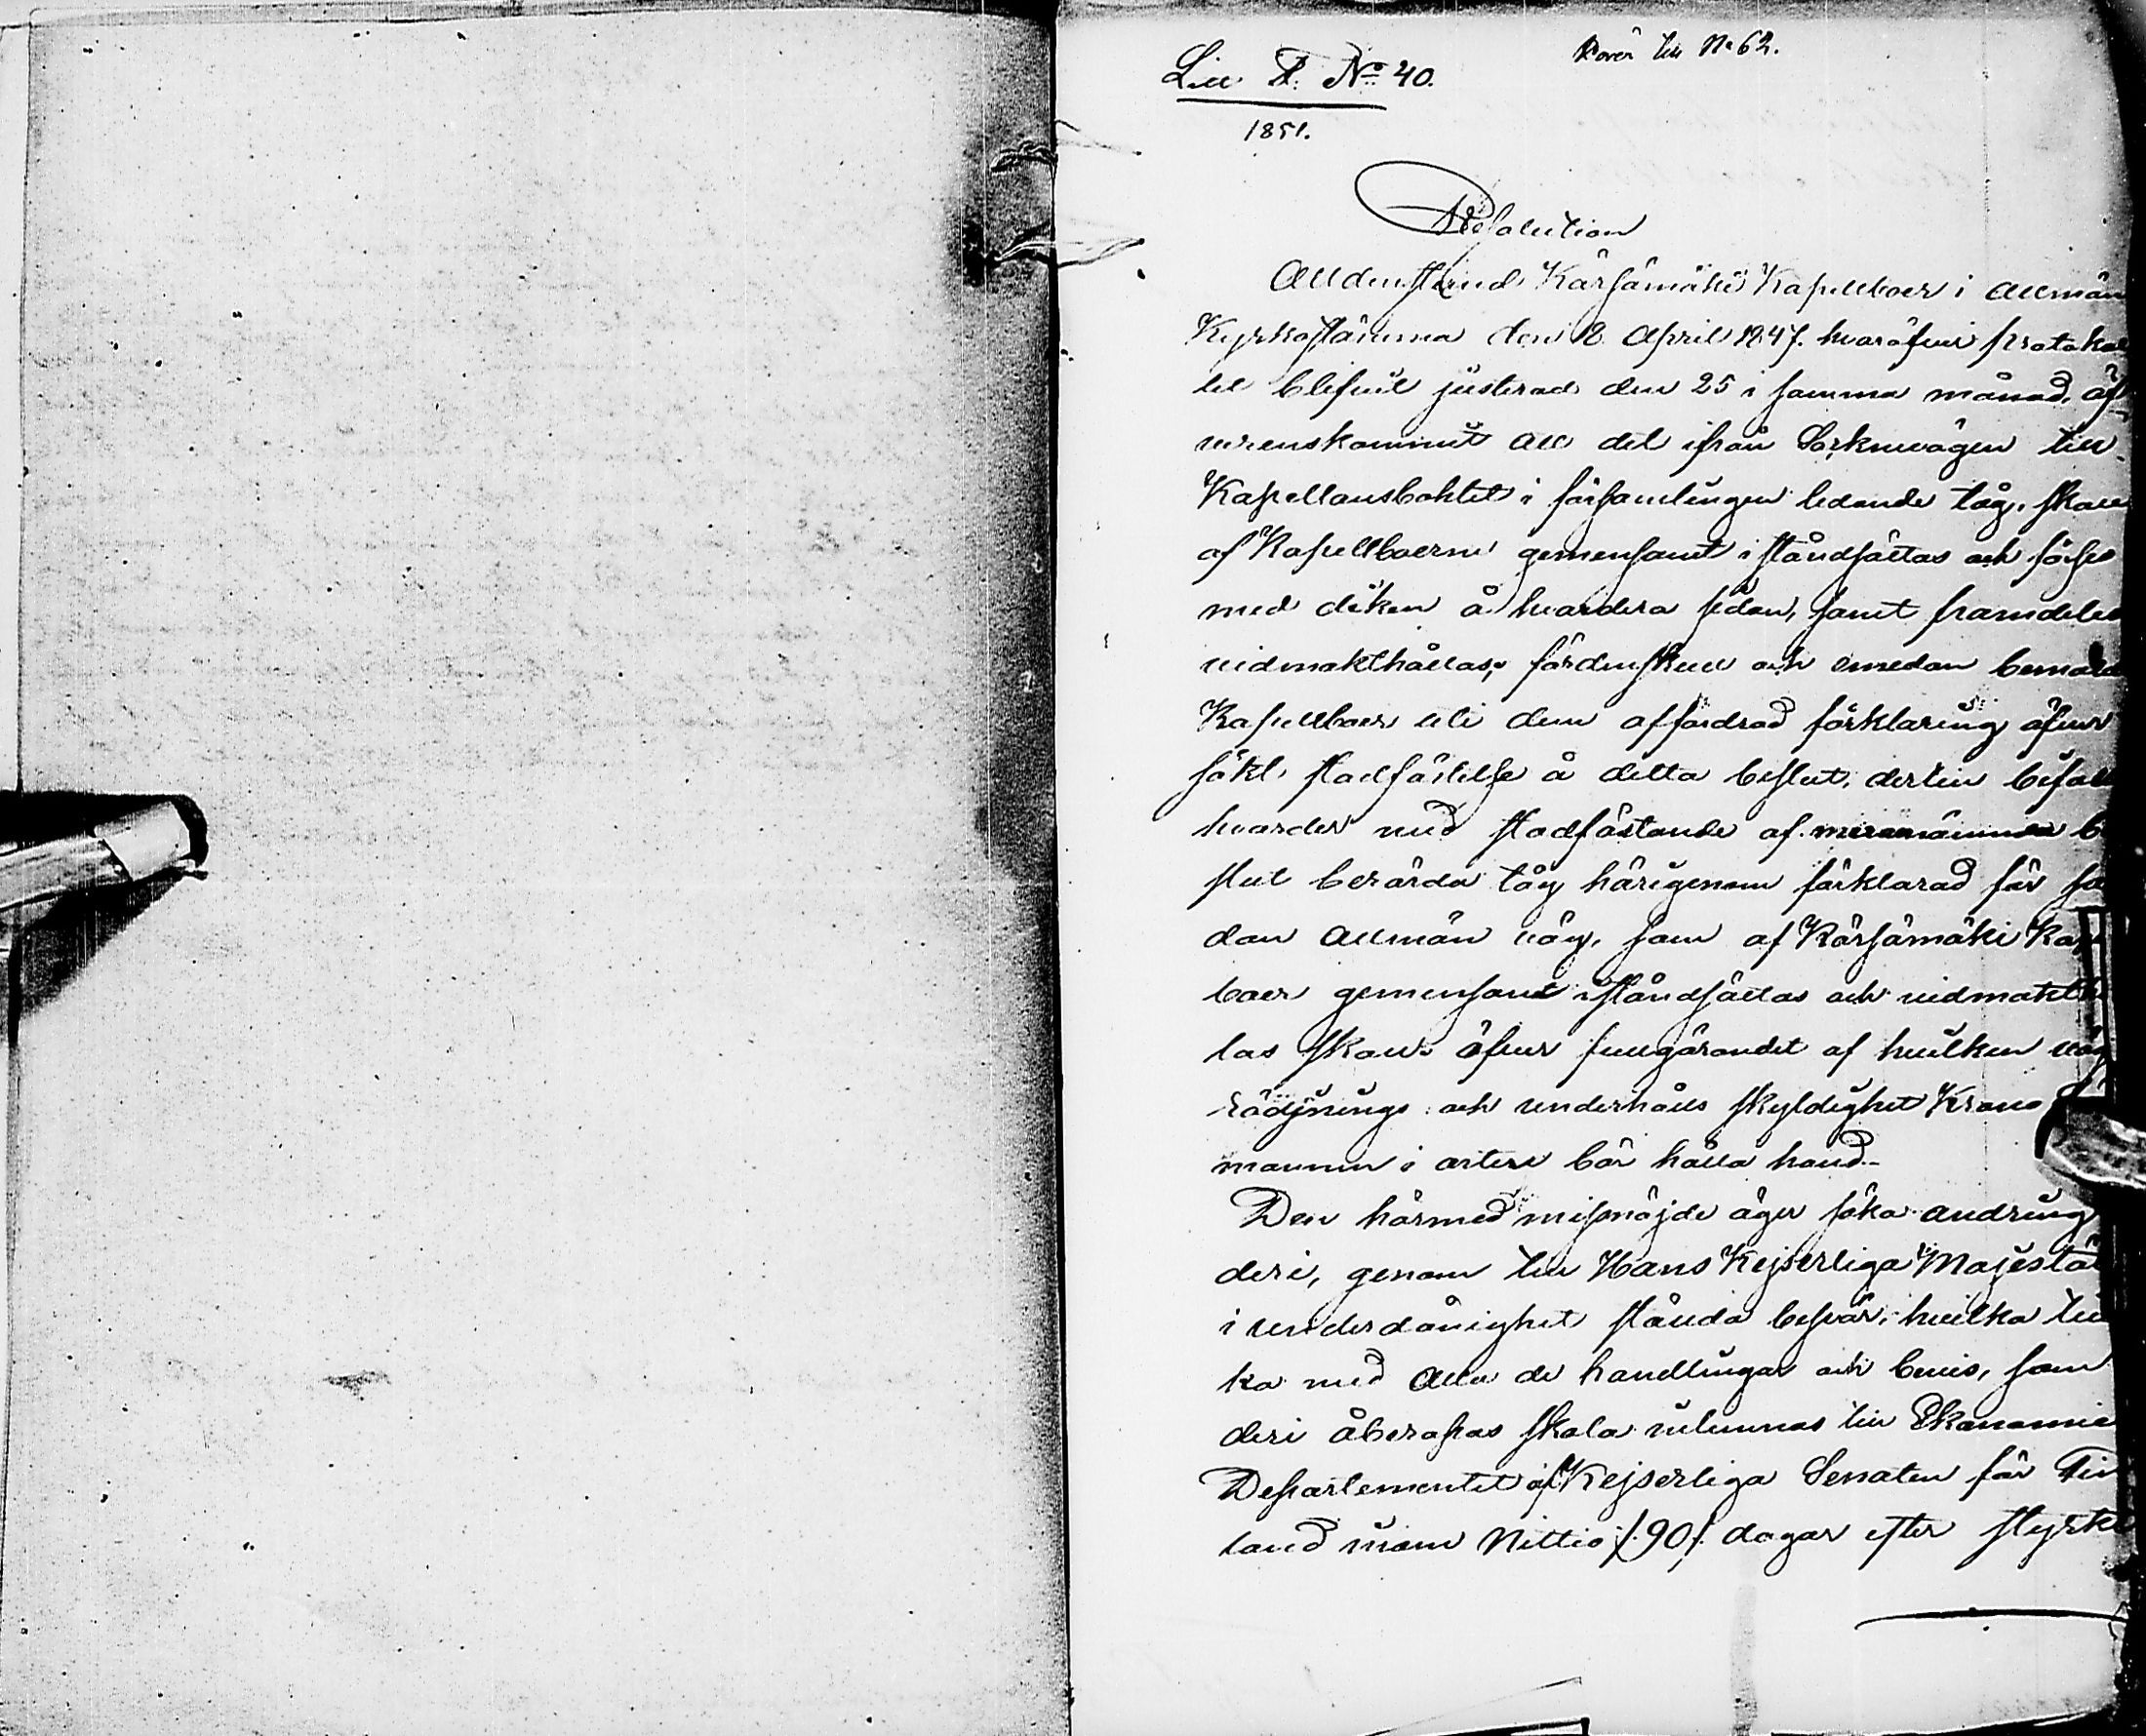 till No 62.
Litt. F. No 40.
1851.
Resolution
Alldenstund Kärsämäki Kapellboer i allmän
Kyrkostämma den 18 April 1847. hvaröfver protokol
let blifvit justerad den 25 i samma månad, öf
verenskommit att det ifrån Socknevägen till
Kapellansbohlet i församlingen ledande tåg, skall
af Kapellboerne gemensamt i ståndsättas och förses
med diken å hvardera sidan, samt framdeles
vidmakthållas; fördenskull och emedan bemälde
Kapellboer uti dem affordrad förklaring öfver
sökt stadfästelse å detta beslut, dertill bifall
varder med stadfästande af merannämnda be
slut berörda tåg härigenom förklarad för så
dan allmän väg, som af Kärsämäki Kapell
boer gemensamt iståndsättas och vidmakthål
las skall. öfver fullgörandet af hvilken väg
rödjnings och underhålls skyldighet Krono
mannen i orten bör hålla hand.
Den härmed missnöjde äger söka andring
deri, genom till Hans Kejserliga Majestät
i underdånighet stälda besvär, hvilka till
ka med alla de handlingar och bevis, som
deri åberopas skola inlemnas till Ekonomie
Departementet af Kejserliga Senaten för Fin
land inom Nittio /:90:/ dagar efter styrkt